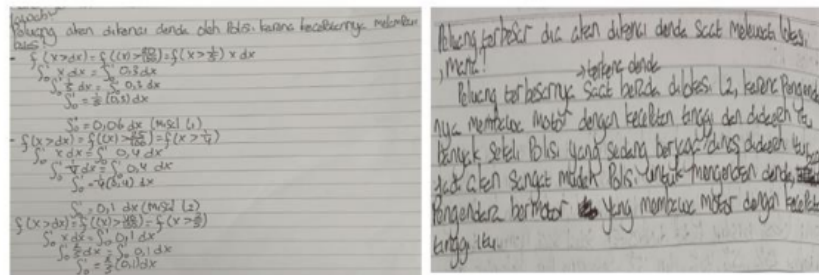 Peluang akan dikenai denda oleh Polisi karena kecepatannya melampaui
batas!
- f (x > dx) = f ((x) > 20/100) = f (x > 1/5) x dx
∫₀¹ x dx = ∫₀¹ 0,3 dx
∫₀¹ 1/5 dx = ∫₀¹ 0,3 dx
∫₀¹ = 1/5 (0,3) dx
∫₀¹ = 0,06 dx (misal L1)
- f (x > dx) = f ((x) > 25/100) = f (x > 1/4)
∫₀¹ x dx = ∫₀¹ 0,4 dx
∫₀¹ 1/4 dx = ∫₀¹ 0,4 dx
∫₀¹ = 1/4 (0,4) dx
∫₀¹ = 0,1 dx (misal L2)
f (x > dx) = f ((x) >
∫₀¹ x dx = ∫₀¹ 0,1 dx
∫₀¹ dx = ∫₀¹ 0,1 dx
∫₀¹ = (0,1) dx
Peluang terbesar dia akan dikenai denda saat melewati lokasi
, mana?
→ terkena denda
Peluang terbesarnya saat berada dilokasi L2, karena Pengenda
nya membawa motor dengan kecepatan tinggi dan didaerah itu
banyak sekali Polisi yang sedang berjaga/dinas didaerah itu,
Jadi akan sangat mudah Polisi untuk mengenakan denda,
Pengendara bermotor yang membawa motor dengan kecepatan
tinggi itu.